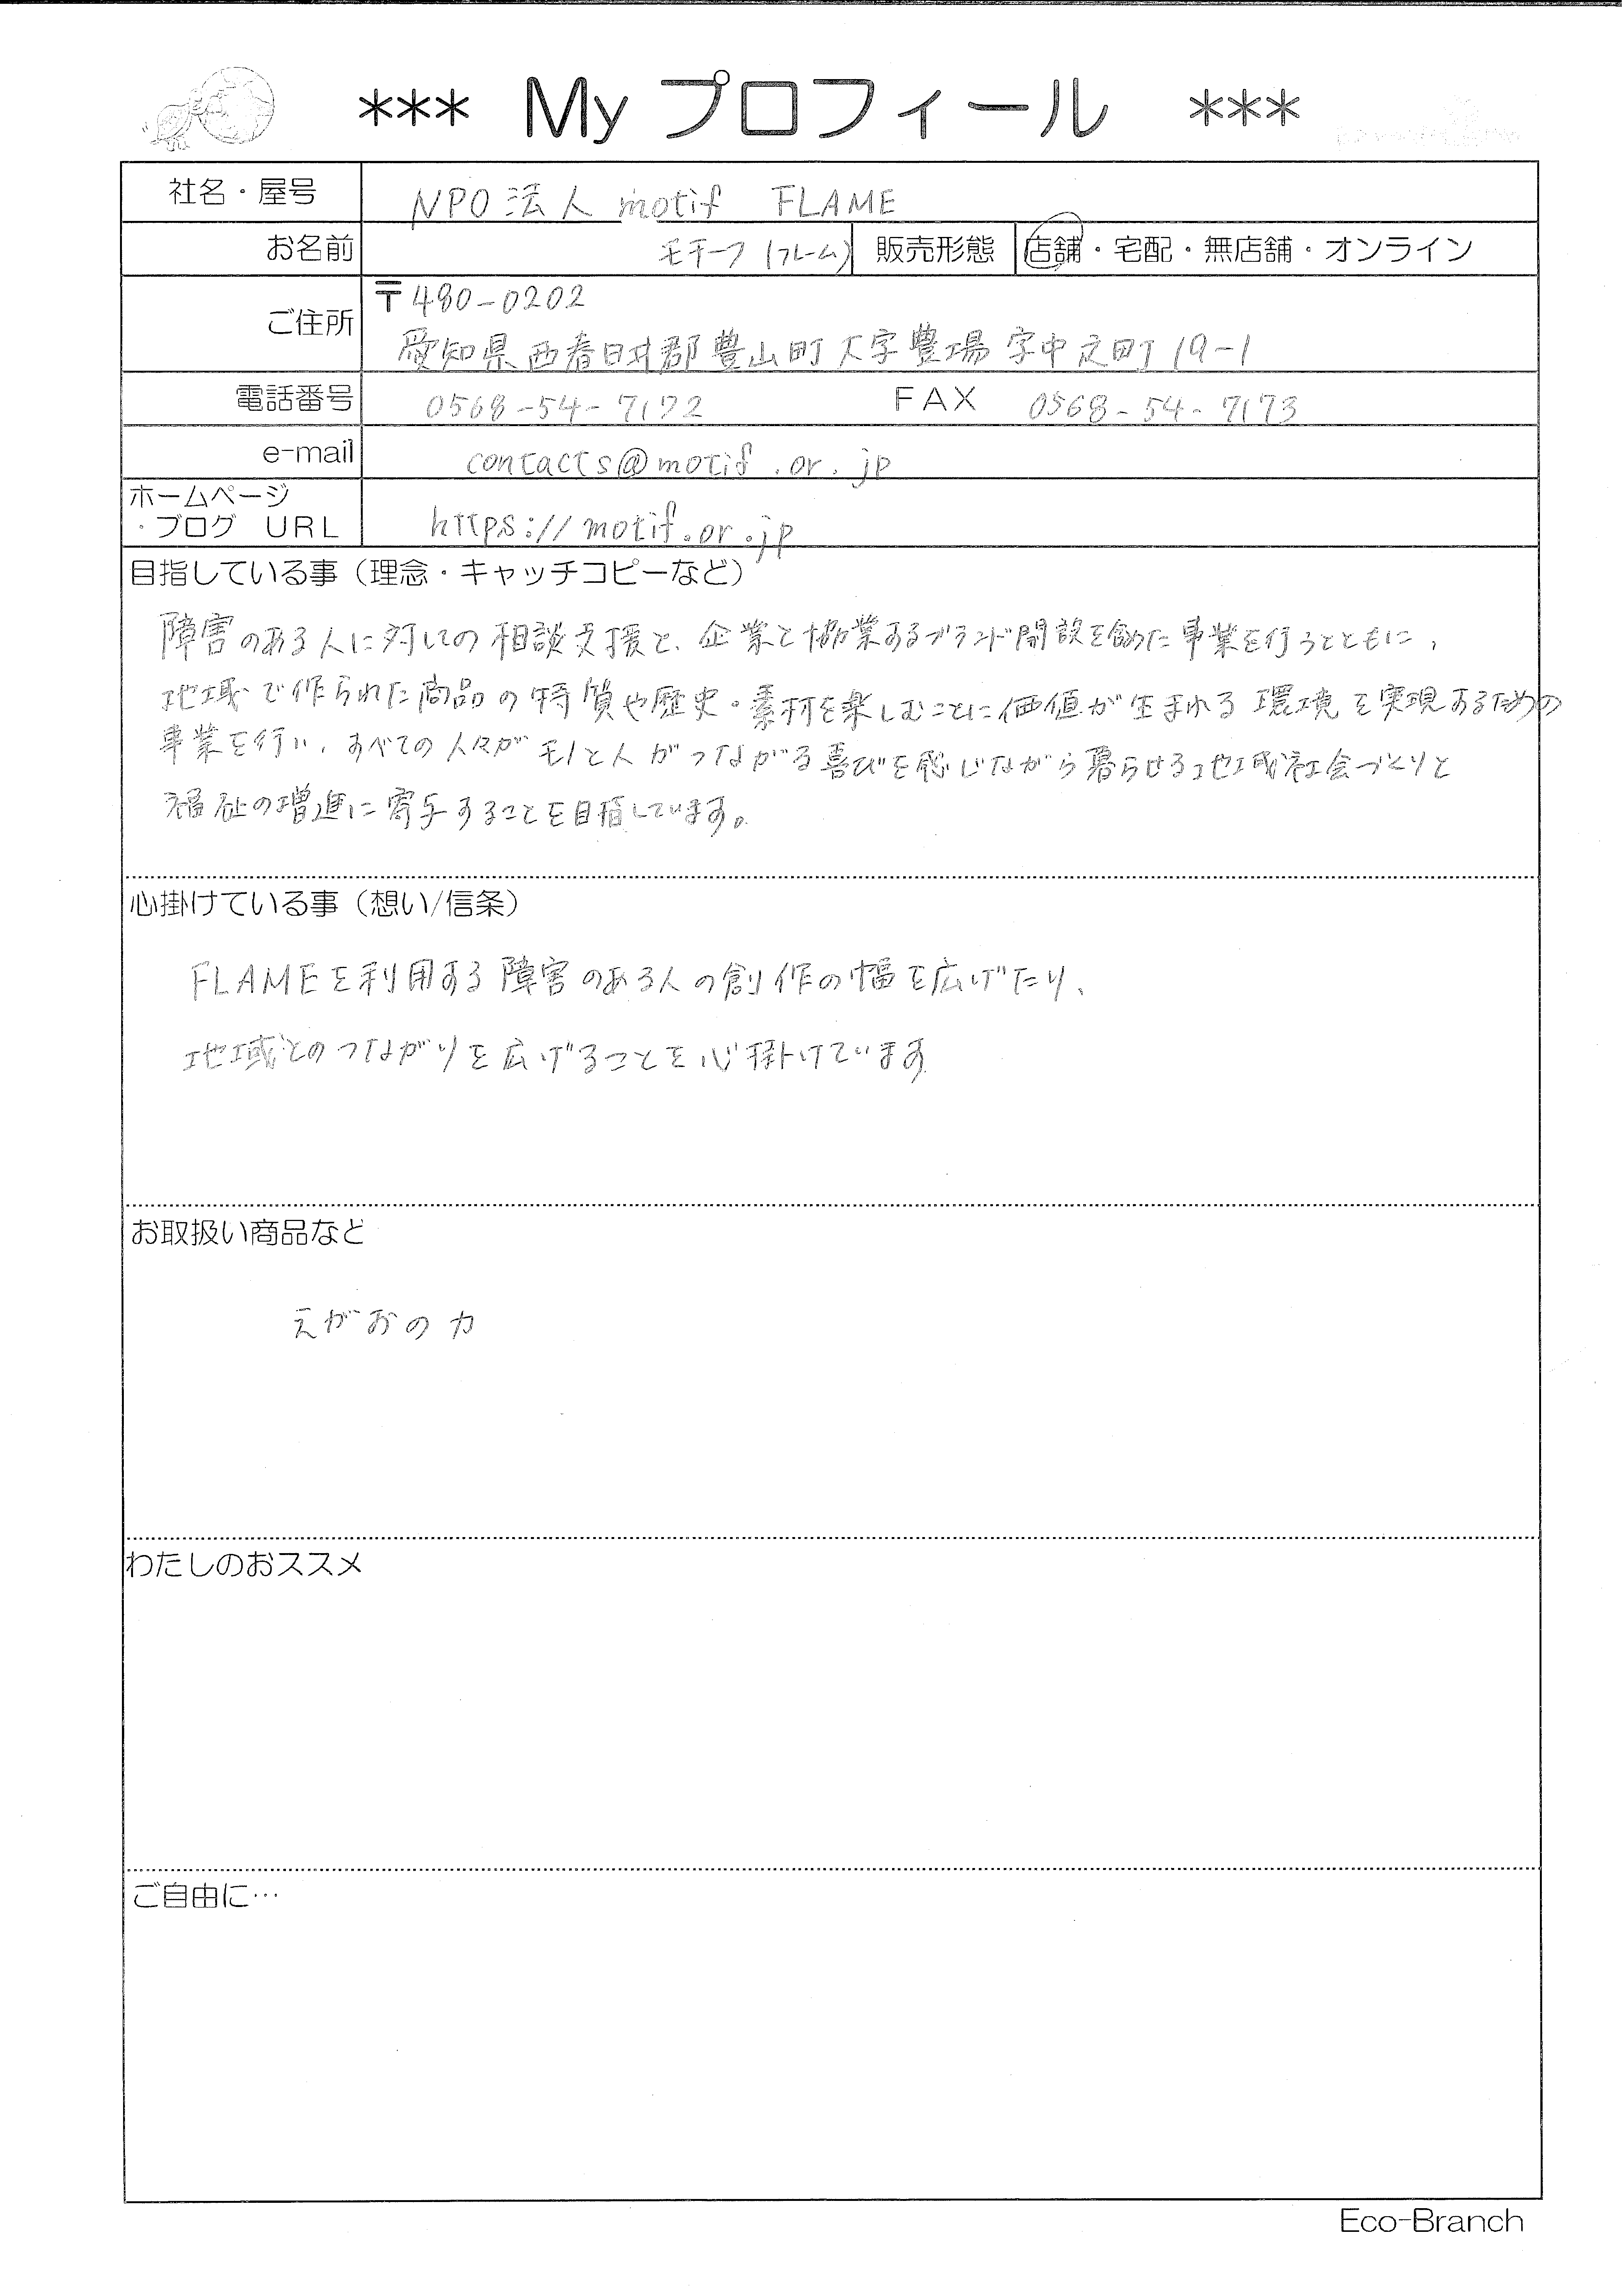 *** My プロフィール ***
社名・屋号 NPO法人 motif FLAME
お名前 モチーフ(フレーム) 販売形態 店舗・宅配・無店舗・オンライン
ご住所 〒480-0202
愛知県西春日井郡豊山町大字豊場字中之町19-1
電話番号 0568-54-7172 FAX 0568-54-7173
e-mail contacts@motif.or.jp
ホームページ
・ブログ URL https://motif.or.jp
目指している事（理念・キャッチコピーなど）
障害のある人に対しての相談支援と、企業と協業するブランド開設を含めた事業を行うとともに、
地域で作られた商品の特質や歴史・素材を楽しむことに価値が生まれる環境を実現するための
事業を行い、すべての人々がモノと人がつながる喜びを感じながら暮らせる地域社会づくりと
福祉の増進に寄与することを目指しています。
心掛けている事（想い/信条）
FLAMEを利用する障害のある人の創作の幅を広げたり、
地域とのつながりを広げることを心掛けています
お取扱い商品など
えがおの力
わたしのおススメ
ご自由に…
Eco-Branch